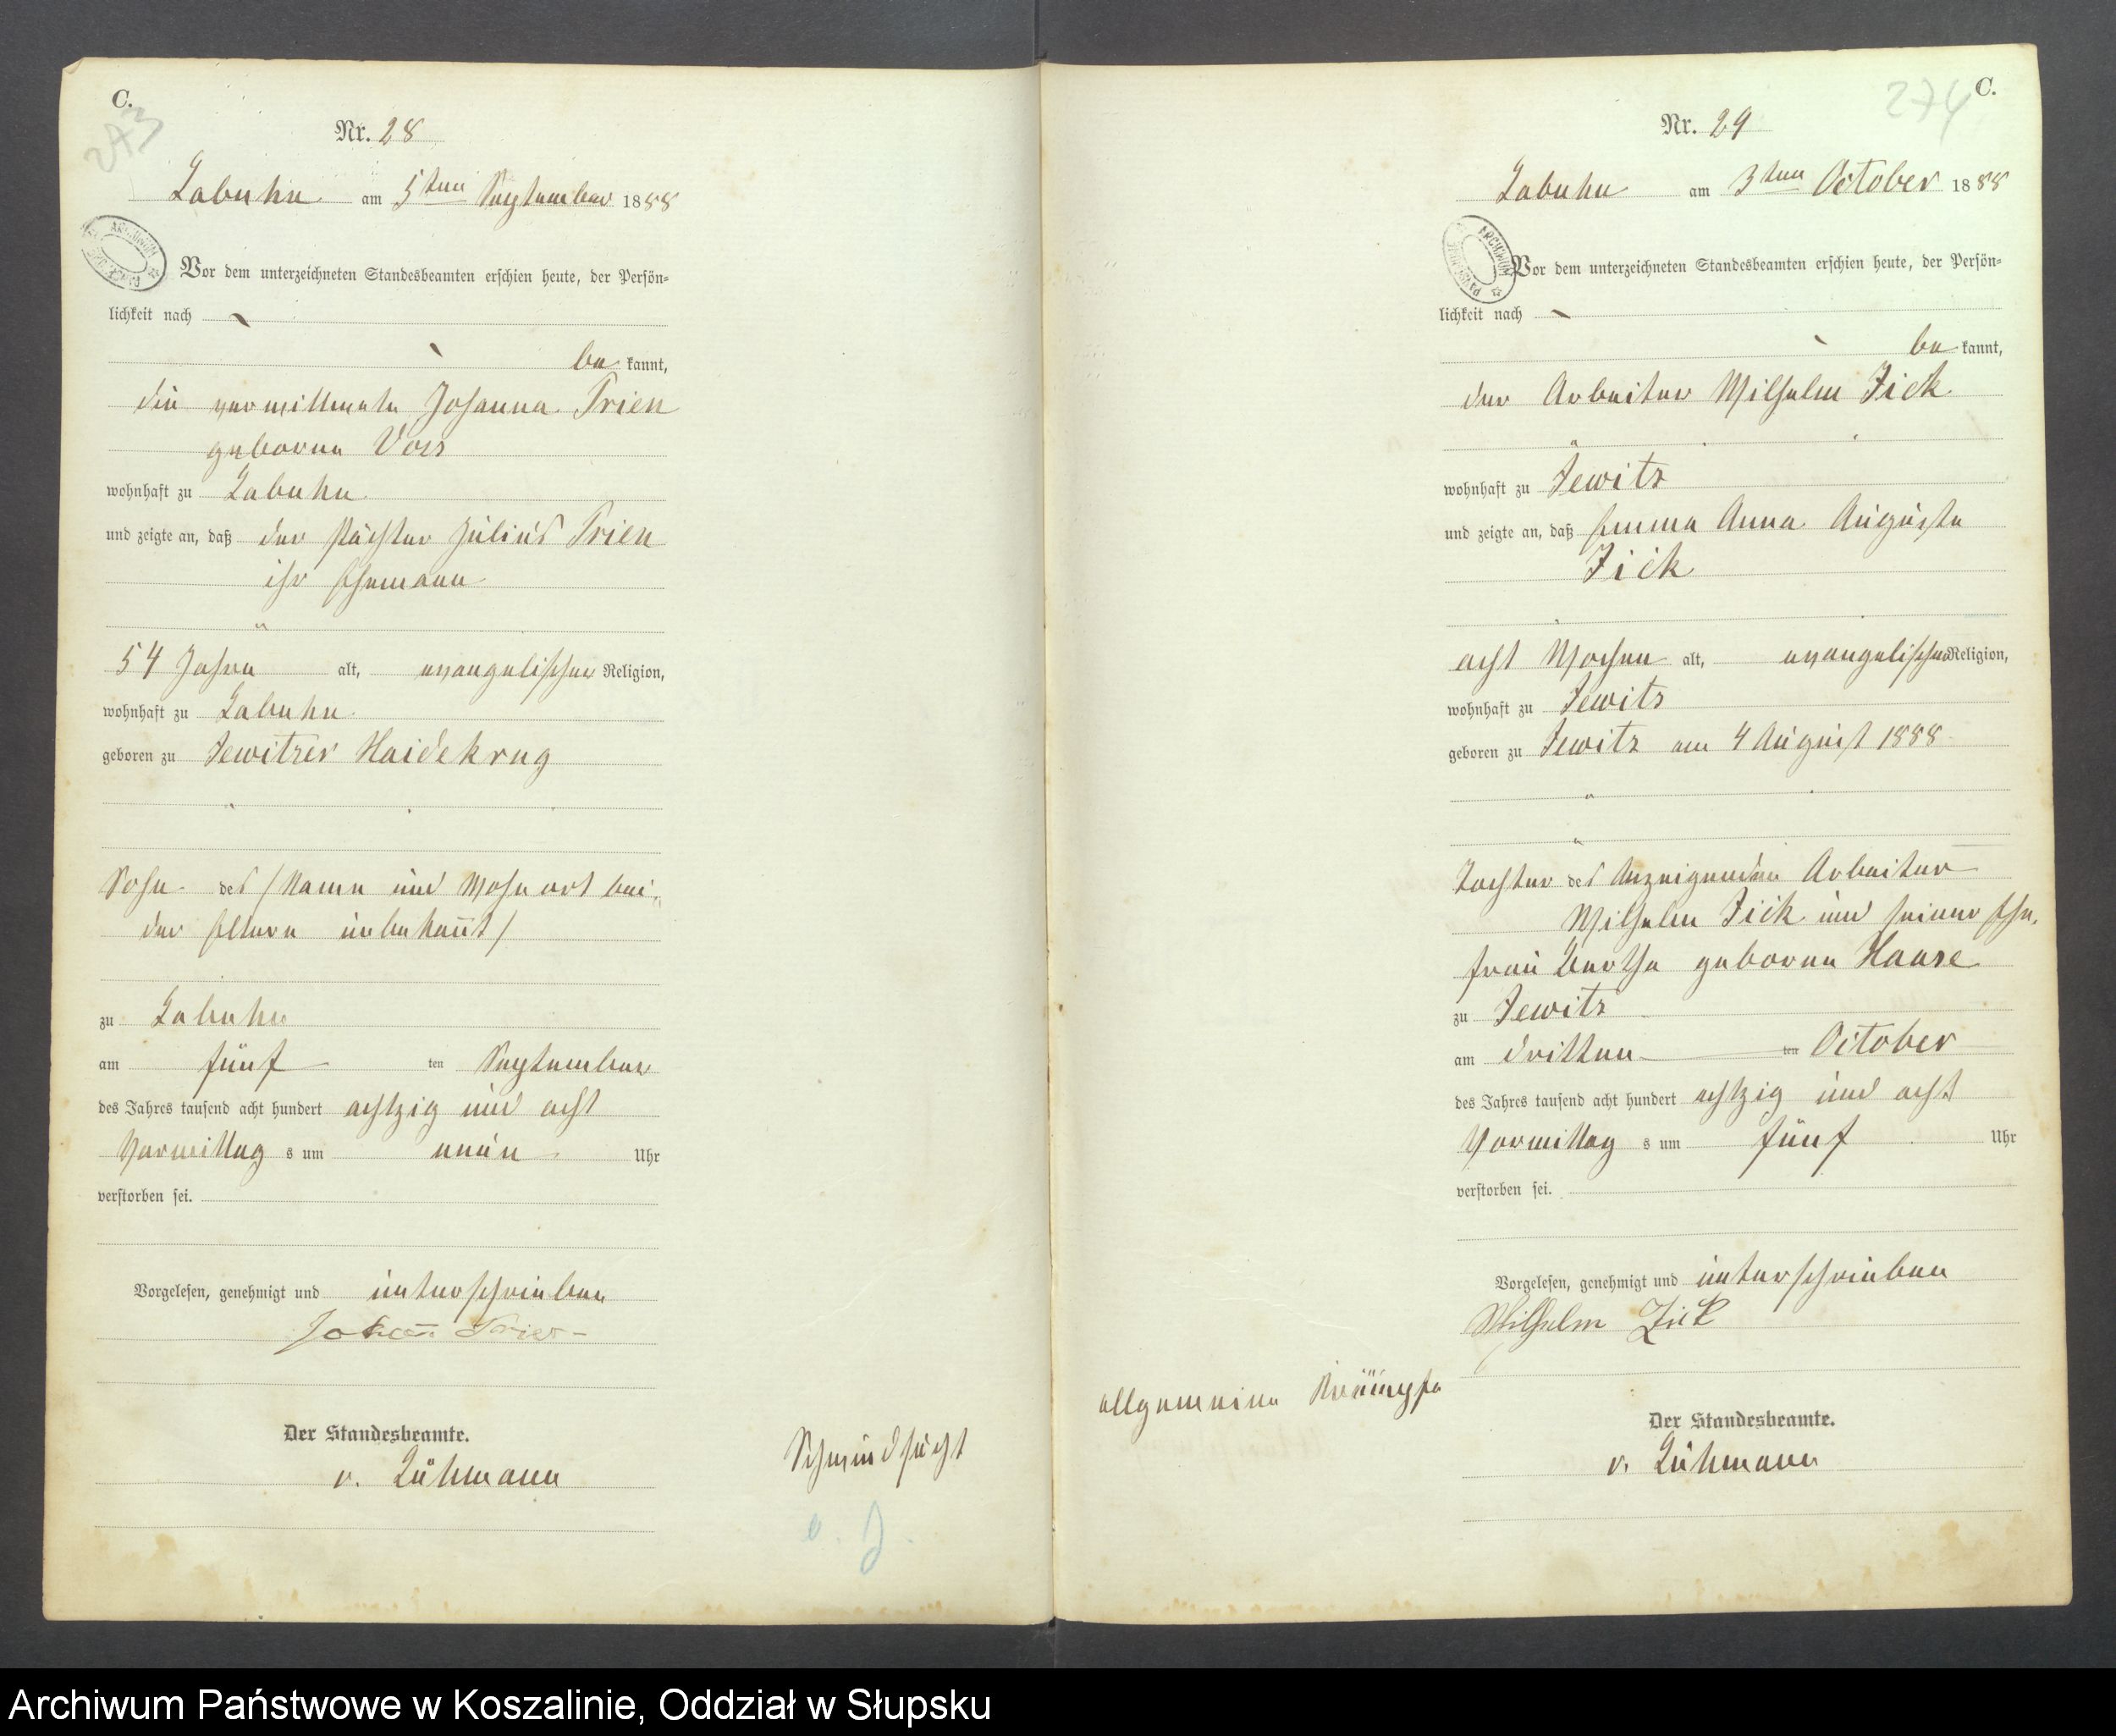 C.
273
Nr. 28
Labuhn am 5ten September 1888
Vor dem unterzeichneten Standesbeamten erschien heute, der Persön-
lichkeit nach
be kannt,
die verwittwete Johanna Prien
geborne Voss
wohnhaft zu Labuhn
und zeigte an, daß der Pächter Julius Prien
ihr Ehemann
54 Jahre alt, evangelischer Religion,
wohnhaft zu Labuhn
geboren zu Jewitzer Haidekrug
Sohn des /Name und Wohnort bei-
der Eltern unbekannt/
zu Labuhn
am fünf ten September
des Jahres tausend acht hundert achtzig und acht
Vormittag s um neun Uhr
verstorben sei.
Vorgelesen, genehmigt und unterschrieben
Der Standesbeamte.
v. Lühmann
Schwindsucht
C.
274
Nr. 29
Labuhn am 3ten October 1888
Vor dem unterzeichneten Standesbeamten erschien heute, der Persön-
lichkeit nach
be kannt,
der Arbeiter Wilhelm Zick
wohnhaft zu Jewitz
und zeigte an, daß Emma Anna Auguste
Zick
acht Wochen alt, evangelischer Religion,
wohnhaft zu Jewitz
geboren zu Jewitz am 4 August 1888
Tochter des Anzeigenden Arbeiter
Wilhelm Zick und seiner Ehe-
frau Bertha geborne Haase
zu Jewitz
am dritten ten October
des Jahres tausend acht hundert achtzig und acht
Vormittag s um fünf Uhr
verstorben sei.
Vorgelesen, genehmigt und unterschrieben
Wilhelm Zick
allgemeine Krämpfe
Der Standesbeamte.
v. Lühmann
Archiwum Państwowe w Koszalinie, Oddział w Słupsku